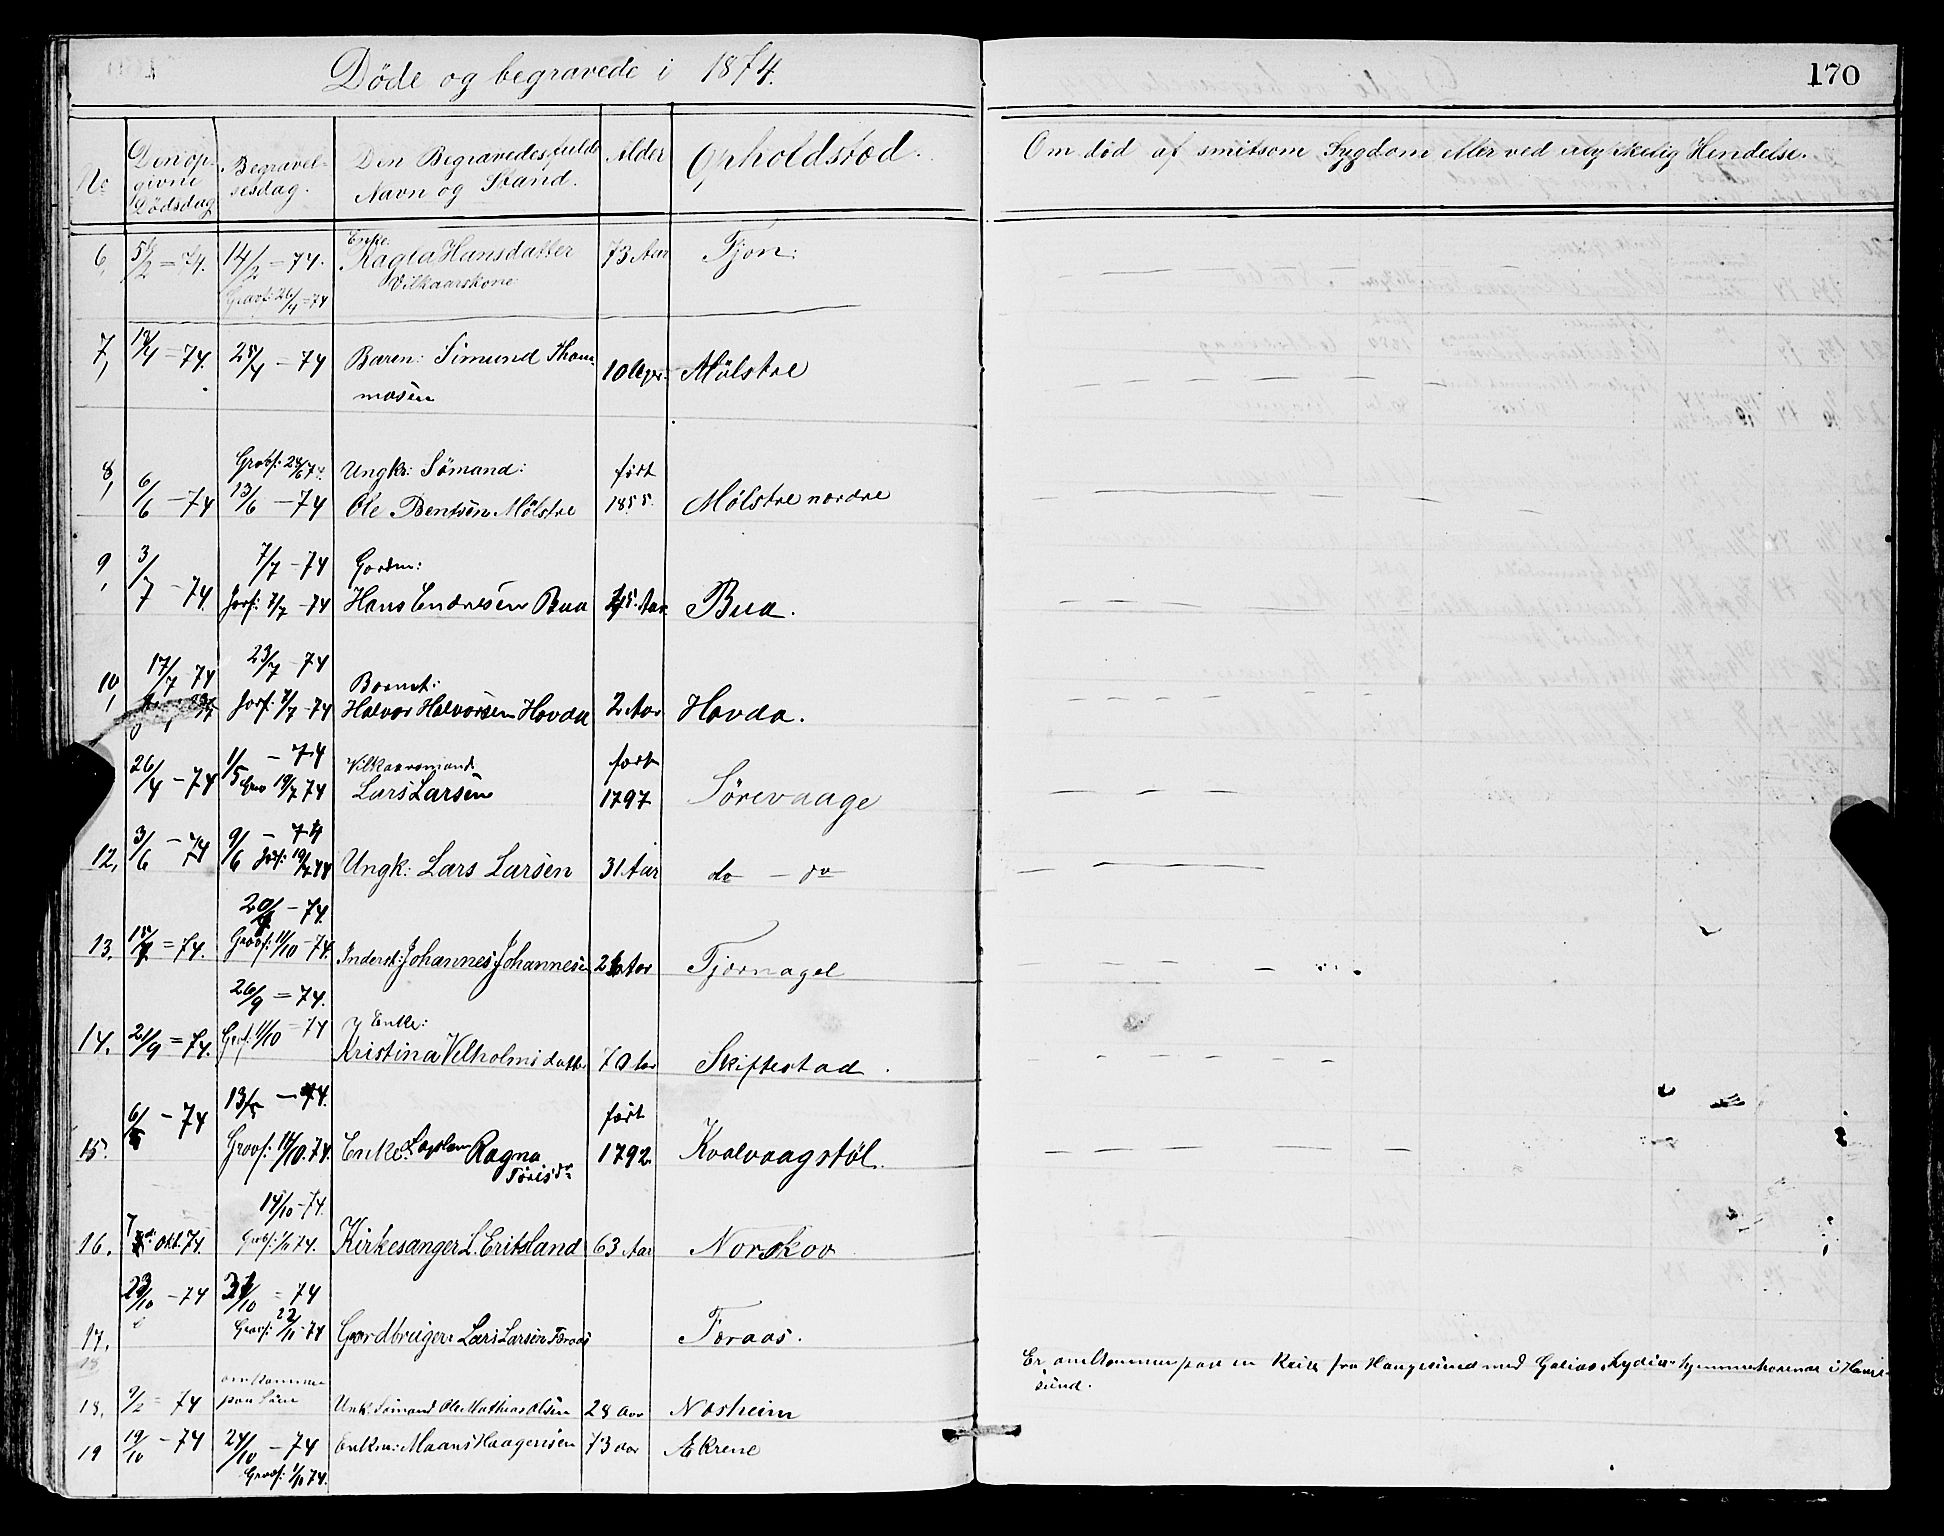 Döde og begravede i 1874.
170
No
Den op-
givne
Dödsdag
Begravel-
sesdag.
Den Begravedes fulde
Navn og Stand.
Alder
Opholdsted.
Om död af smitsom Sygdom eller ved ulykkelig Hendelse.
Enke:
6, 5/2 = 74. 14/2 - 74. Ragla Hansdatter 73 Aar Tjon:
Vilkaarskone
Gravf: 26/4 = 74
7, 19/4 = 74. 25/4 - 74 Baren: Simund Thom- 10 Uger: Mölstre
masen
Gravf: 28/6 74 Ungkr: Sömand: födt
8, 6/6 - 74 13/6 - 74 Ole Bentsen Mölstre 1855. Mölstre nordre
9, 3/7 - 74. 7/7 - 74 Gardm:
Jorf: 7/7 - 74 Hans Endresen Bua Aar. Bua.
17/7 74 23/7 - 74 Barnet:
10, Jorf: 7/7 - 74 Halvor Halvorsen Hovda 2 Aar Hovda.
26/4 - 74 1/5 - 74 Vilkaarsmand födt
Grav 19/7 74 Lars Larsen 1797 Sörevaage
3/6 - 74 9/6 - 74
12, Jorf: 19/7 74 Ungk: Lars Larsen 31 Aar do - do
20/9 - 74.
13. = 74. Gravf: 11/10 - 74. Inderst: Johannes Johannesen Aar Tjernagel
26/9 = 74.
14. 21/9 = 74. Gravf: 11/10 = 74 Enke:
Kristina Vilholmsdatter 70 Aar Skiftestad.
6/5 - 74 13/5 - 74. födt
15. Gravf: 11/10. 74. Enke: Ragna 1792. Kvalvaagstöl.
Törisdr
14/10 - 74.
16. 7 Okt. 74. Gravf: 1/11 74. Kirkesanger L. Eritsland 63 Aar Norskov
23/10 - 74 31/10 = 74
17. Gravf: 22/11 - 74 Gardbruger Lars Larsen Færaas Færaas.
18
18. 9/2 = 74 omkommen
paa Söen Unk. Sömand Ole Mathias Olsen 28 Aar Næsheim
Er omkommen paa en Reise fra Haugesund med Galias "Lydia" hjemmehörende i Hauge-
sund.
19 19/10 - 74 24/10 - 74 Enkm: Maans Haagensen 73 Aar Ækrene
Gravf: 1/11 74.